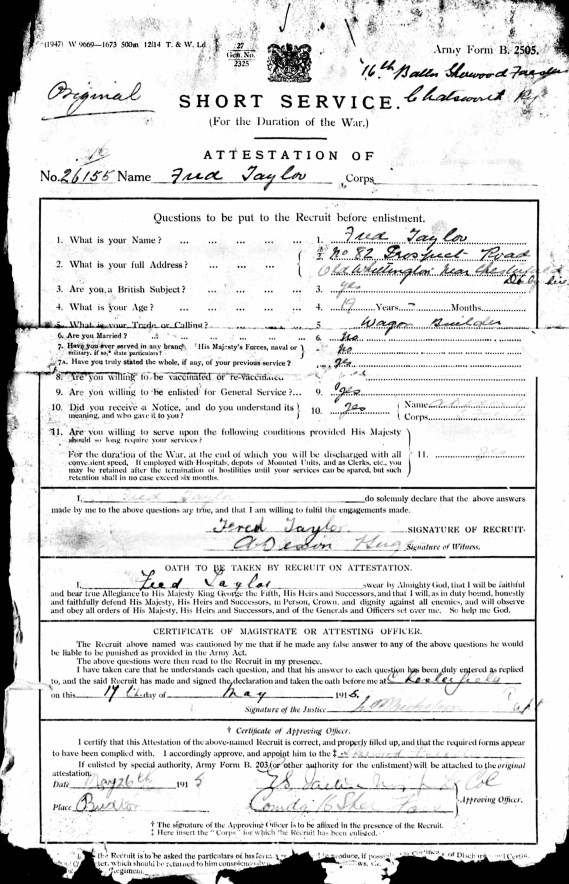 (1947) W 9669—1673 500m 12/14 T. & W. Ld.
27
Gen. No.
2325
Army Form B. 2505.
16th Battn Sherwood
Original
SHORT SERVICE.
Chatsworth
(For the Duration of the War.)
ATTESTATION OF
No. 26155 Name Fred Taylor Corps
Questions to be put to the Recruit before enlistment.
1. What is your Name? ... 1. Fred Taylor
2. What is your full Address? ... 2. No 82 Prospect Road
Old Whittington Near Chesterfield
Derbyshire
3. Are you a British Subject? ... 3. yes
4. What is your Age? ... 4. 19 Years — Months
5. What is your Trade or Calling? ... 5 Wagon Builder
6. Are you Married? ... 6. No
7. Have you ever served in any branch His Majesty's Forces, naval or
military, if so,* state particulars? 7. No
7A. Have you truly stated the whole, if any, of your previous service? yes
8. Are you willing to be vaccinated or re-vaccinated
9. Are you willing to be enlisted for General Service?... 9. Yes
10. Did you receive a Notice, and do you understand its
meaning, and who gave it to you? 10. yes Name
Corps
11. Are you willing to serve upon the following conditions provided His Majesty
should so long require your services?
For the duration of the War, at the end of which you will be discharged with all
convenient speed. If employed with Hospitals, depots of Mounted Units, and as Clerks, etc., you
may be retained after the termination of hostilities until your services can be spared, but such
retention shall in no case exceed six months. 11. yes
I, Fred Taylor do solemnly declare that the above answers
made by me to the above questions are true, and that I am willing to fulfil the engagements made.
Fered Taylor SIGNATURE OF RECRUIT.
Signature of Witness.
OATH TO BE TAKEN BY RECRUIT ON ATTESTATION.
I, Fred Taylor swear by Almighty God, that I will be faithful
and bear true Allegiance to His Majesty King George the Fifth, His Heirs and Successors, and that I will, as in duty bound, honestly
and faithfully defend His Majesty, His Heirs and Successors, in Person, Crown, and dignity against all enemies, and will observe
and obey all orders of His Majesty, His Heirs and Successors, and of the Generals and Officers set over me. So help me God.
CERTIFICATE OF MAGISTRATE OR ATTESTING OFFICER.
The Recruit above named was cautioned by me that if he made any false answer to any of the above questions he would
be liable to be punished as provided in the Army Act.
The above questions were then read to the Recruit in my presence.
I have taken care that he understands each question, and that his answer to each question has been duly entered as replied
to, and the said Recruit has made and signed the declaration and taken the oath before me at Chesterfield
on this 19th day of May 1915.
Signature of the Justice Capt
† Certificate of Approving Officer.
I certify that this Attestation of the above-named Recruit is correct, and properly filled up, and that the required forms appear
to have been complied with. I accordingly approve, and appoint him to the ‡
If enlisted by special authority, Army Form B. 203 (or other authority for the enlistment) will be attached to the original
attestation.
Date May 26th 1915 Col
Approving Officer.
Place Buxton
† The signature of the Approving Officer is to be affixed in the presence of the Recruit.
‡ Here insert the "Corps" for which the Recruit has been enlisted.
the Recruit is to be asked the particulars of his
which should be returned to him conspicuously